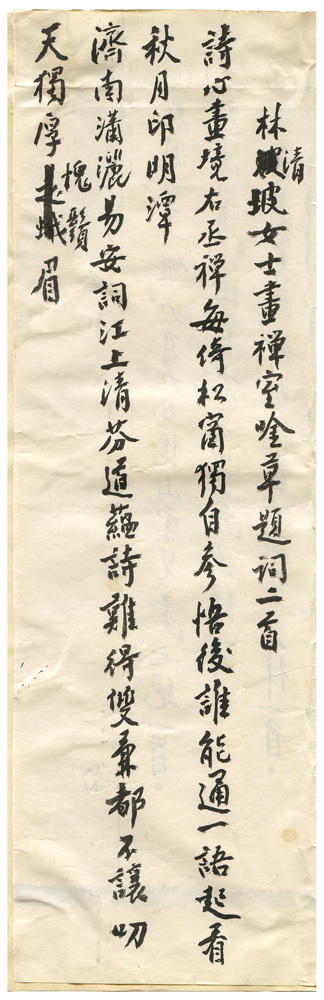 林清玻女士畫禪室唫草題詞二首
詩心畫境右丞禪每倚松窗獨自參悟後誰能通一語起看
秋月印明潭
濟南瀟灑易安詞江上清芬道蘊詩難得雙兼都不讓叨
天獨厚愧鬚眉